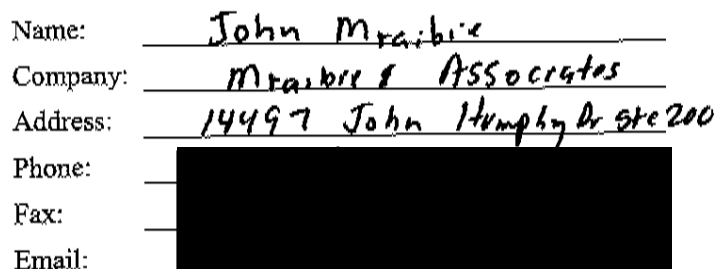 Name: John Mraibie
Company: Mraibie & Associates
Address: 14497 John Humphy Dr Ste 200
Phone:
Fax:
Email: